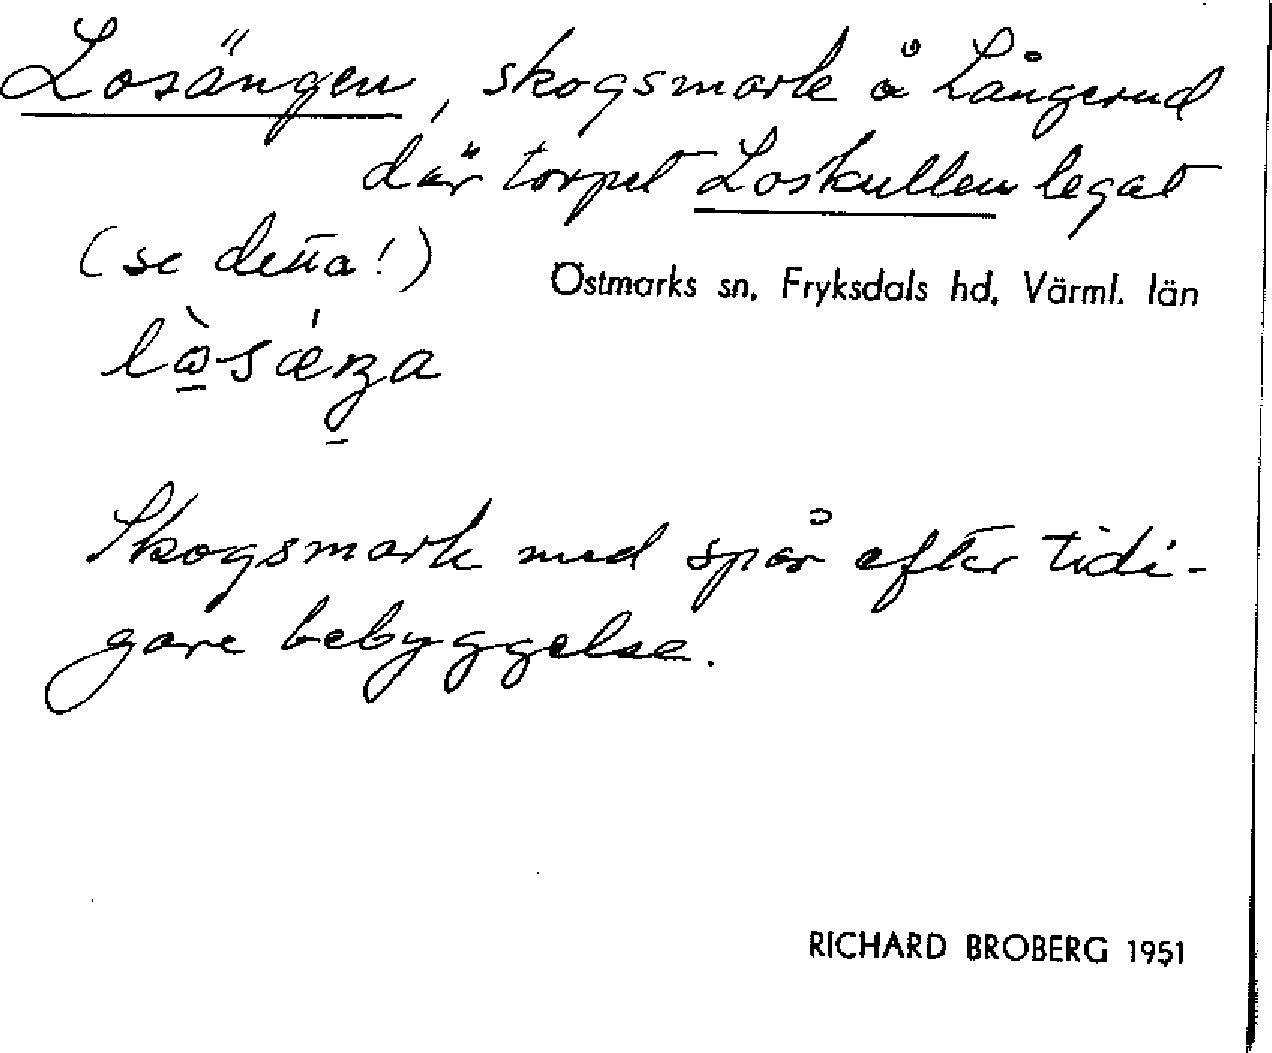 Losängen, skogsmark å Långerud
där torpet Loskullen legat
(se detta!)
Östmarks sn. Fryksdals hd. Värml. län
Skogsmark med spår efter tidi-
gare bebyggelse.
RICHARD BROBERG 1951